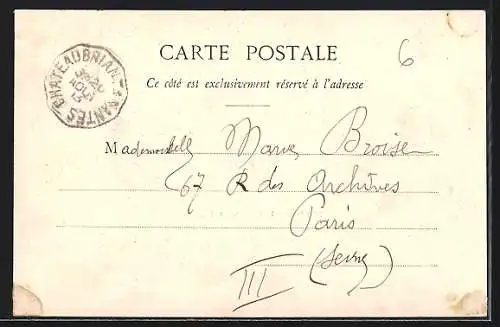 CHATEAUBRIANT A NANTES
20
AOUT
6
CARTE POSTALE
Ce côté est exclusivement réservé à l'adresse
Mademoiselle Marie Broise
67 R des Archives
Paris
(Seine)
III